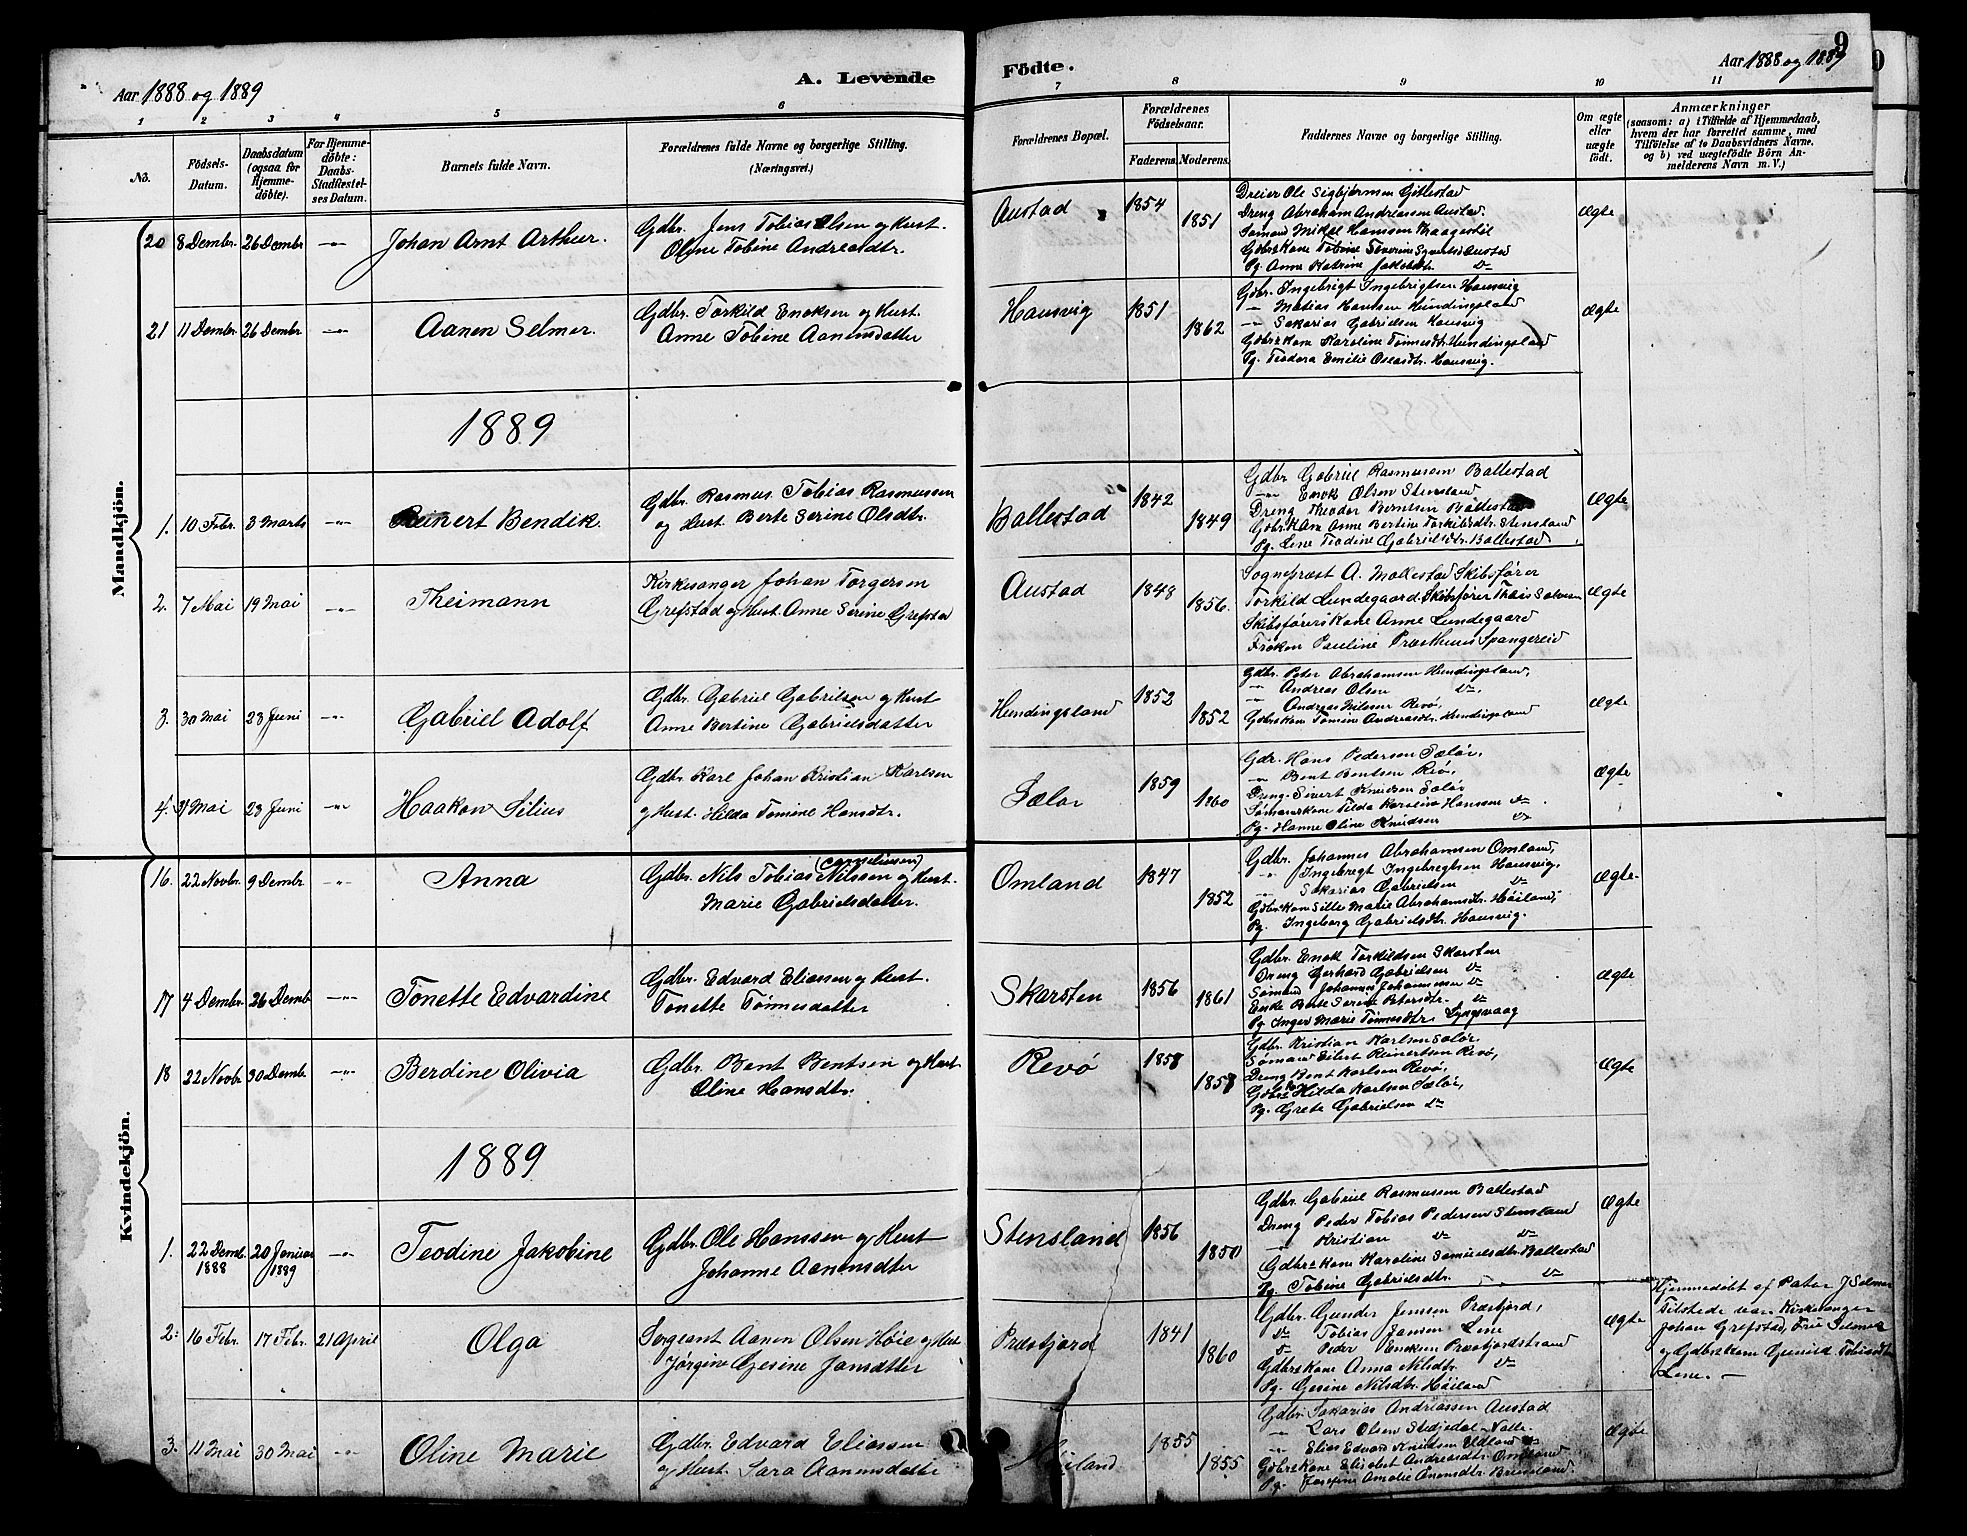 Aar 1888 og 1889
A. Levende
Födte.
Aar 1888 og 1889
9
1 2 3 4 5 6 7 8 9 10 11
No.
Födsels-
Datum.
Daabsdatum
(ogsaa for
Hjemme-
döbte).
For Hjemme-
döbte:
Daabs-
Stadfæstel-
ses Datum.
Barnets fulde Navn.
Forældrenes fulde Navne og borgerlige Stilling.
(Næringsvei.)
Forældrenes Bopæl.
Forældrenes
Födselsaar.
Faderens. Moderens.
Faddernes Navne og borgerlige Stilling.
Om ægte
eller
uægte
födt.
Anmærkninger
(saasom: a) i Tilfælde af Hjemmedaab,
hvem der har forrettet samme, med
Tilföielse af to Daabsvidners Navne,
og b) ved uægtefödte Börn An-
melderens Navn m. V.)
Mandkjön.
20 8 Dembr. 26 Dembr Johan Arnt Arthur.
Gdbr. Jens Tobias Olsen og Hust.
Olene Tobine Andreasdtr.
Austad 1854 1851
Dreier Ole Sigbjørnsen Gitlestad
Dreng Abraham Andreassen Austad.
Sømand Mikal Hansen Kaagestil
Gdbrs Kone Tobine Severine Syvertsd Austad
Pg. Anne Katrine Jakobdtr. do
Ægte
21 11 Dembr. 26 Dembr. Aanen Selmer.
Gdbr. Torkild Enoksen og Hust.
Anne Tobine Aanensdatter
Hausvig 1851 1862
Gdbr. Ingebrigt Ingebrigtsen Hausvig
" Matias Hansen Hundingsland
" Sakarias Gabrielsen Hausvig
Gdbrs Kone Karoline Tønnesdtr. Hundingsland
Pg. Teodora Emilie Olsdtr. Hausvig.
Ægte
1889
1. 10 Febr. 3 Marts Reinert Bendik.
Gdbr. Rasmus Tobias Rasmussen
og Hust. Berte Serine Olsdtr.
Ballestad 1842 1849
Gdbr Gabriel Rasmussen Ballestad
" Enok Olsen Stensland
Dreng Theodor Berntsen Ballestad
Gdbrs Kone Anne Bertine Torkildsdtr. Stensland
Pg. Lene Teodine Gabrielsdtr. Ballestad
Ægte
2. 7 Mai 19 Mai Theimann
Kirkesanger Johan Torgersen
Grefstad og Hust. Anne Serine Grefstad
Austad 1848 1856.
Sognepræst A. Mollestad Skibsfører
Torkild Lundegaard. Skibsfører Thais Salvesen
Skibsførerskone Anne Lundegaard
Frøken Pauline Præsthuus Spangereid
Ægte
3. 30 Mai 23 Juni Gabriel Adolf
Gdbr. Gabriel Gabrielsen og Hust
Anne Bertine Gabrielsdatter
Hundingsland 1852 1852
Gdbr. Peter Abrahamsen Hundingsland,
" Andreas Olsen do,
" Andreas Nilsen Revø,
Gdbrskone Tomine Andreasdtr. Hundingsland
Ægte
4. 31 Mai 23 Juni Haakon Silius
Gdbr Karl Johan Kristian Karlsen
og Hust. Hilda Tomine Hansdtr.
Sælør 1859 1860
Gdr. Hans Pedersen Sælør,
" Bent Bentsen Revø,
Dreng Sivert Knudsen Sælør
Sømandskone Tilda Karoline Hanssen do
Pg. Hanne Oline Knudsen do
Ægte
Kvindekjön.
16. 22 Novbr. 9 Dembr. Anna
Gdbr. Nils Tobias Nilssen (Corneliusen) og Hust.
Marie Gabrielsdatter.
Omland 1847 1852
Gdbr. Johannes Abrahamsen Omland,
" Ingebregt Ingebregtsen Hausvig,
" Sakarias Gabrielsen do
Gdbrskone Sille Marie Abrahamsdtr. Høiland,
Pg. Ingeborg Gabrielsdtr. Hausvig.
Ægte
17 4 Dembr. 26 Demb Tonette Edvardine
Gdbr. Edvard Eliassen og Hust.
Tonette Tønnesdatter
Skarsten 1856 1861
Gdbr. Enok Torkildsen Skarsten
Dreng Gerhard Gabrielsen do
Sømand Johannes Johannessen do
Enke Berte Serene Petersdtr. do
Pg Inger Marie Tønnesdtr. Lyngsvaag
Ægte
18 22 Novbr 30 Dembr Berdine Olivia
Gdbr. Bent Bentsen og Hust
Oline Hansdtr.
Revø 1858 1858
Gdbr. Kristian Karlsen Sælør.
Sømand Eilert Reinertsen Revø,
Dreng Bent Karlsen Revø,
Gdbrs Kone Hilda Karlsen Sælør,
Pg. Grete Gabrielsen do
Ægte
1889
1. 22 Demb. 1888 20 Januar 1889 Teodine Jakobine
Gdbr. Ole Hanssen og Hust
Johanne Aanensdatter
Stensland 1856 1850
Gdbr. Gabriel Rasmussen Ballestad
Dreng Peder Tobias Pedersen Stensland
" Kristian do do
Gdbrs Kone Karoline Samuelsdtr. Ballestad
Pg. Tobine Gabrielsdtr. do
Ægte
2. 16 Febr. 17 Febr. 21 April Olga
Sergeant Aanen Olsen Høie og Hust
Jørgine Gesine Jansdatter
Præstjord 1841 1860
Gdbr. Gunder Jensen Præstjord,
do Tobias Jansen Lene
do Peder Enoksen Præstjordstrand
Gdbrskone Anna Nilsdtr. do
Pg. Gesine Nilsdtr. Høiland
Ægte
Hjemmedøbt af Pater J Selmer
Tilstede var Kirkesanger
Johan Grefstad, Fru Selmer
og Gdbrskone Gunild Tobiasdtr
Lene.
3. 11 Mai 30 Mai Oline Marie
Gdbr. Edvard Eliassen
og Hust. Sara Aanensdatter
Høiland 1855 1855
Gdbr. Sakarias Andreassen Austad
" Lars Olsen
" Elias Edvard Knudsen Udland
Gdbrskone Elisabet Andreasdtr. Omland
Pg. Josefine Amalie Anensdtr. Brunsland.
Ægte